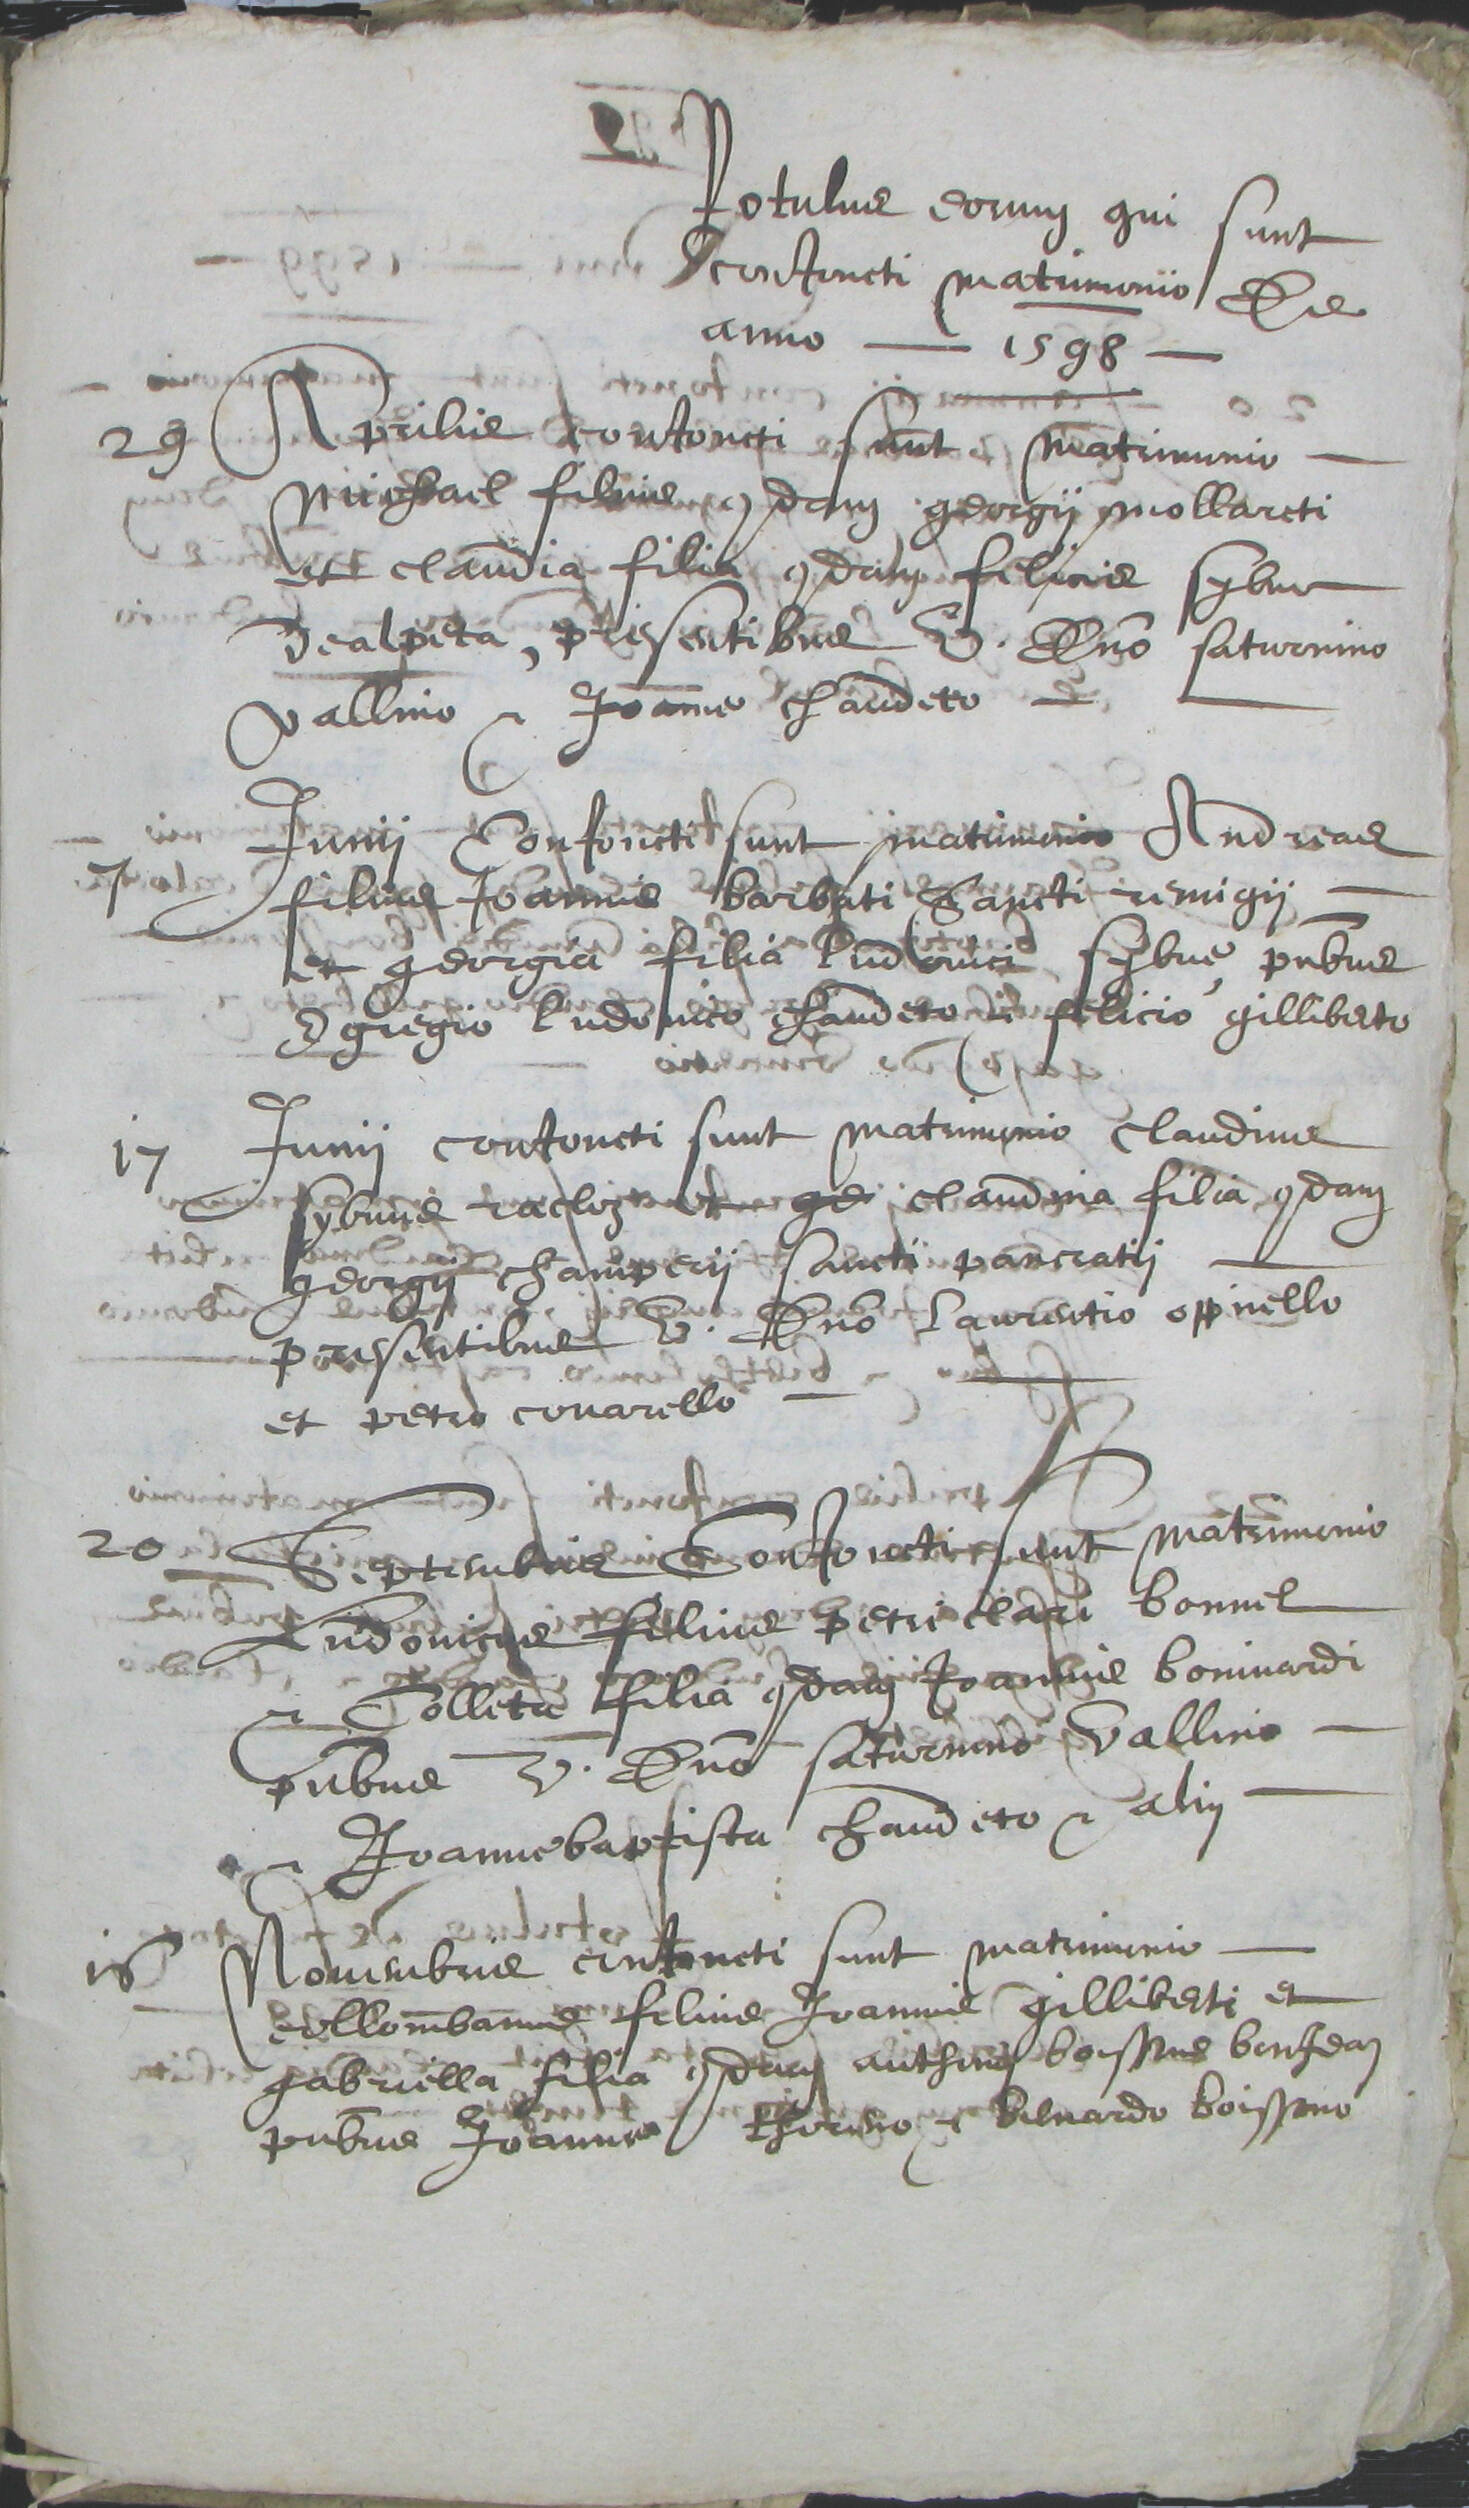 Rotulus eorum qui sunt
conjoncti matrimonio De
anno — 1598 —
29 Aprilis conjoncti sunt matrimonio —
Michael filius qdam georgij mollareti
et claudia filia qdam felicis sybue
Dealpeta, presentibus V. Dno saturnino
vallino & Joanne chaudeto &
7 Junij Conjoncti sunt matrimonio Andreas
filius Joannis barbati Sancti remigij —
et georgia filia ludovici sybue, pntibus
Egregio ludovico chaudeto & felicio gilliberto
17 Junij conjoncti sunt matrimonio claudius
sybuus racloz et claudina filia qdam
georgij champerij sancti pancratij —
presentibus V. Dno Laurentio opinello
et petro covarello —
20 Septembris Conjoncti sunt matrimonio
Ludovicus filius petri clari bonnel
& Colleta filia qdam Joannis boninardi
pntibus V. Dno saturnino Vallino —
& Joannebaptista chaudeto & alijs
16 Novembris conjoncti sunt matrimonio —
collombanus filius Joannis gilliberti et
gabriella filia qdam anthonij boissone
pntibus Joanne & bernardo boissono